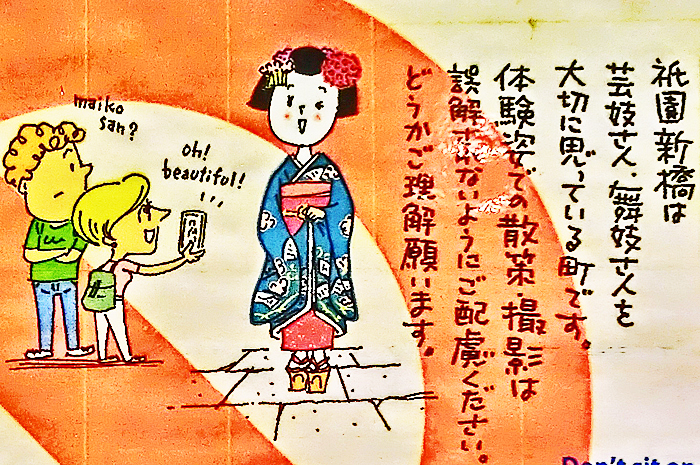 祇園新橋は
芸妓さん、舞妓さんを
大切に思っている町です。
体験姿での散策 撮影は
誤解されないようにご配慮ください。
どうかご理解願います。
maiko
san?
oh!
beautiful!
Don't sit on